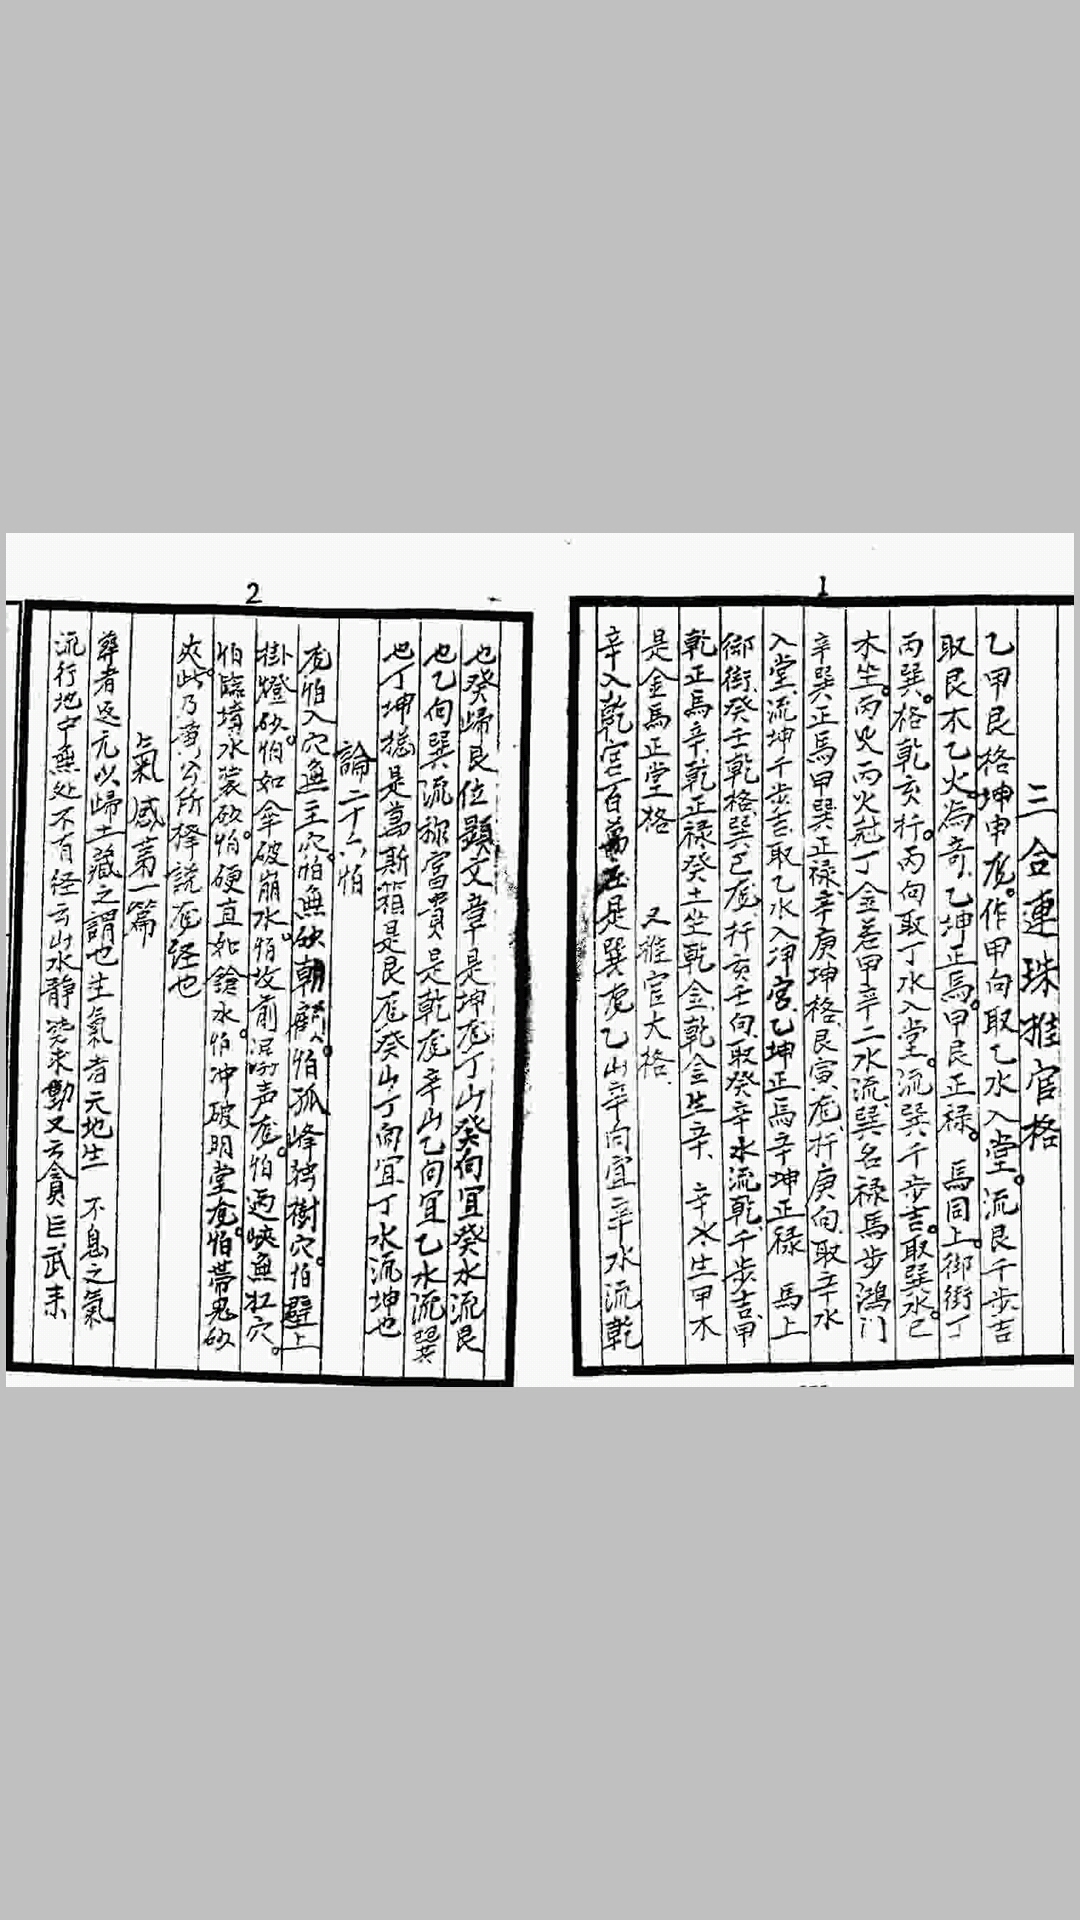 1
三合連珠推官格
乙甲艮格坤申龙。作甲向取乙水入堂。流艮千步吉
取艮木乙火為奇乙坤正馬。甲艮正禄。馬同上御街丁
丙巽。格乾亥行。丙向取丁水入堂。流巽千步吉。取巽水。巳
木坐。丙火丙火丁金 甲辛二水流巽名禄馬步鴻门
辛巽正馬甲巽正禄辛庚坤格艮寅龙行庚向取辛水
入堂流坤千步吉取乙水入 宮乙坤正馬辛坤正禄 馬上
御街癸壬乾格巽巳龙行亥壬向取癸辛水流乾千步吉甲
乾正馬辛乾正禄癸土坐乾金乾金生辛 辛水生甲木
是金馬正堂格 又推官大格
辛入乾宮百萬 是巽龙乙山辛向宜辛水流乾
2
也癸歸艮位顕文章是坤龙丁山癸向宜癸水流艮
也乙向巽流称富貴是乾龙辛山乙向宜乙水流巽
也丁坤 是萬斯箱是艮龙癸山丁向宜丁水流坤也
論二十六怕
龙怕入穴無主穴。怕無砍朝顧。怕孤峰独樹穴。怕壁上
掛燈砍。怕如傘破崩水。怕坟前 声龙。怕 峽無杠穴。
怕臨墳水 砍。怕硬直如鎗水。怕冲破明堂龙。怕帶鬼砍
夾。此乃黄公所擇説龙経也
氣感第一篇
葬者 元以歸土藏之謂也生氣者天地生 不息之氣
流行地中無处不有経云山水静 来動又云貪巨武来